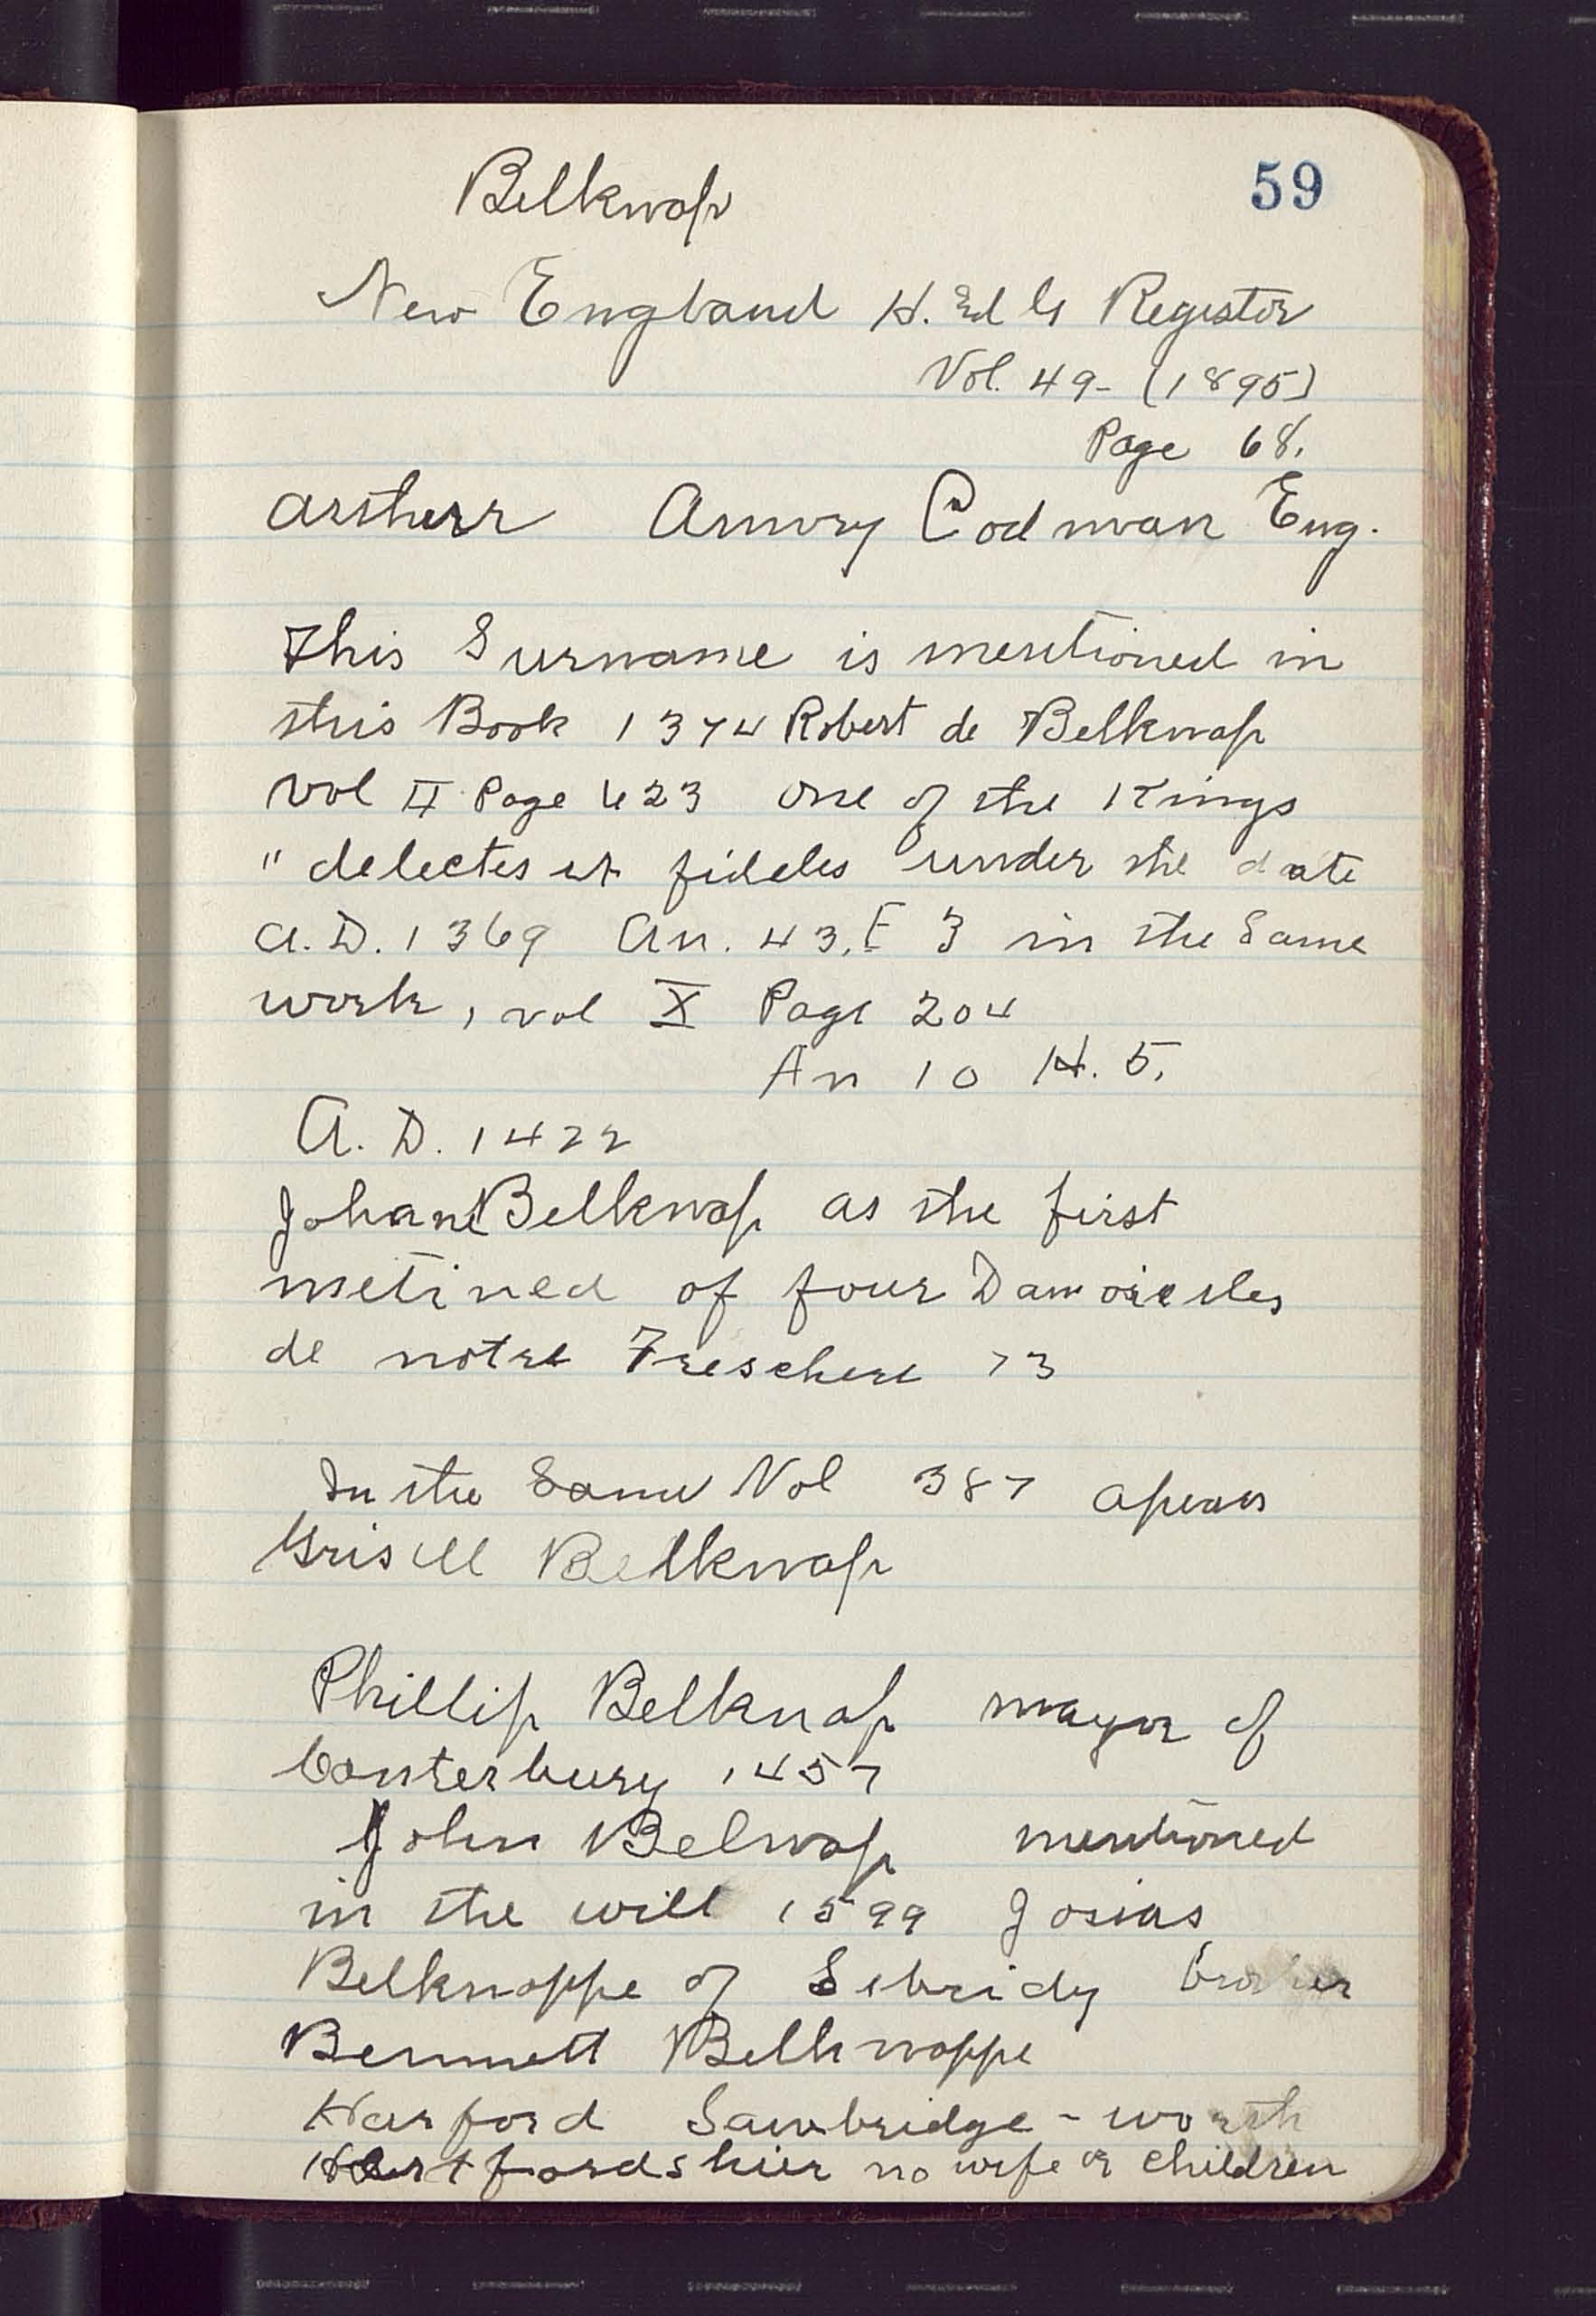 59
Belknap
New England H. Ed G Register
Vol. 49- (1895)
Page 68.
Arthur Amory Codman Eng.
This Surname is mentioned in
this Book 1374 Robert de Belknap
vol II Page 423 one of the Kings
" delectes et fideles under the date
A.D. 1369 An. 43. E 3 in the Same
work, vol X Page 204
An 10 H. 5.
A. D. 1422
Johane Belknap as the first
metined of four
de notre Treschere 73
In the Same Vol 387 apears
Grisell Belknap
Phillip Belknap mayor of
Canterbury 1457
John Belnap mentioned
in the will 1599 Josias
Belknappe of Sebridy
Bennett Belknappe
Harford Sawbridge - worth
Hertfordshier no wife or children